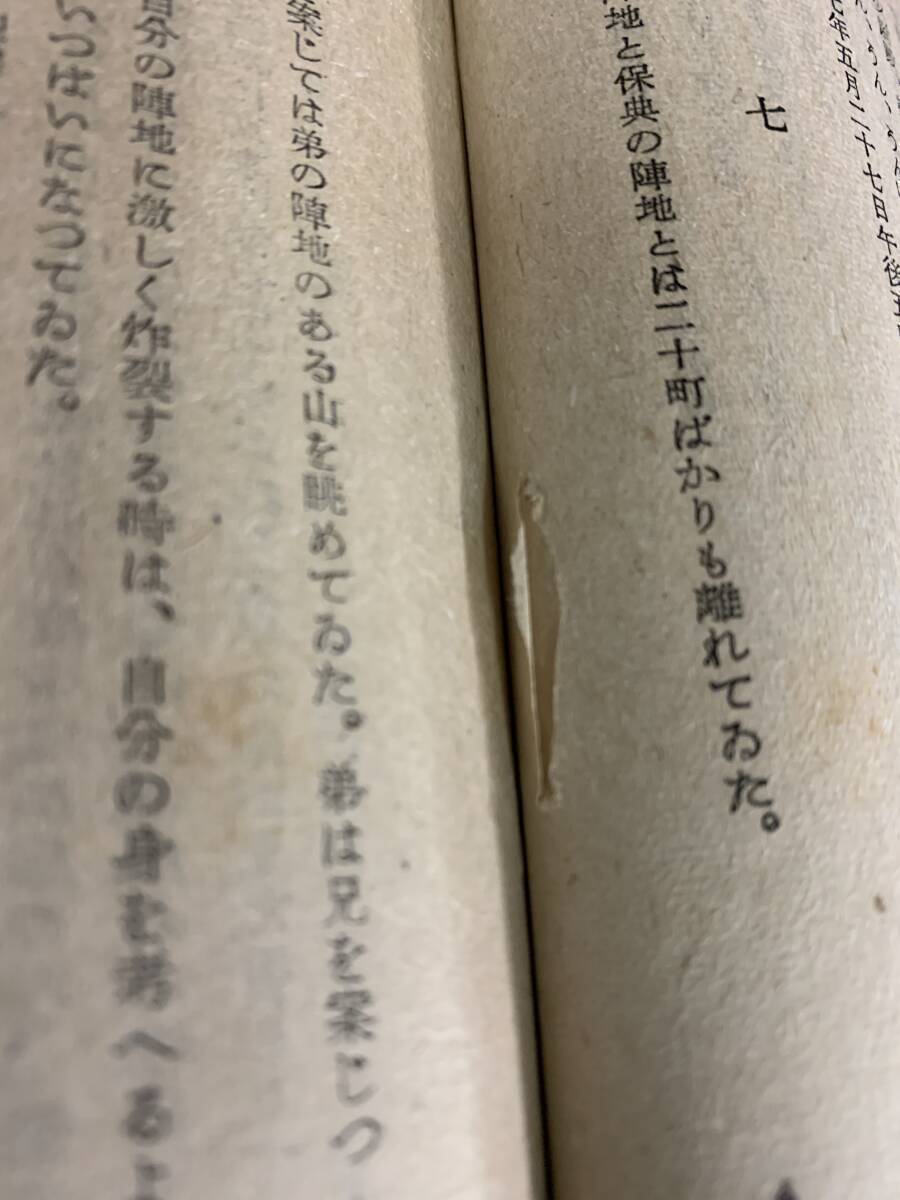 年五月二十七日午後五
七
地と保典の陣地とは二十町ばかりも離れてゐた。
案じては弟の陣地のある山を眺めてゐた。弟は兄を案じつ
自分の陣地に激しく炸裂する時は、自分の身を考へるよ
いつぱいになつてゐた。